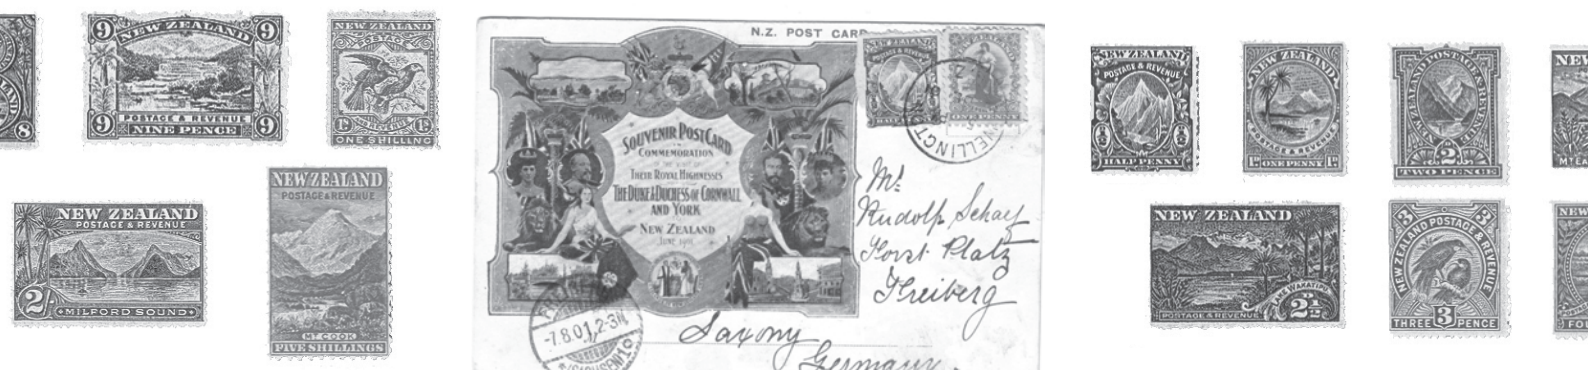 8
9 NEW ZEALAND 9
9 POSTAGE & REVENUE 9
NINE PENCE
NEW ZEALAND
POSTAGE
AND REVENUE
1s 1s
ONE SHILLING
NEW ZEALAND
POSTAGE & REVENUE
2/-
MILFORD SOUND
NEW ZEALAND
POSTAGE & REVENUE
MT COOK
FIVE SHILLINGS
N.Z. POST CARD
SOUVENIR POST CARD
IN
COMMEMORATION
OF
THEIR ROYAL HIGHNESSES
THE DUKE & DUCHESS OF CORNWALL
AND YORK
NEW ZEALAND
JUNE 1901
NEW ZEALAND
POSTAGE & REVENUE
HALF PENNY
ONE PENNY
WELLINGT
Mr.
Rudolf Scharf
Forst Platz
Freiberg
Saxony
Germany
-7.8.01.2-3N.
NEW ZEALAND
POSTAGE & REVENUE
HALF PENNY
NEW ZEALAND
POSTAGE & REVENUE
1D ONE PENNY 1D
NEW ZEALAND POSTAGE & REVENUE
2
TWO PENCE
NEW
MT EA
NEW ZEALAND
LAKE WAKATIPU
POSTAGE & REVENUE
2½
3 3
NEW ZEALAND POSTAGE & REVENUE
THREE 3 PENCE
NEW
FOU